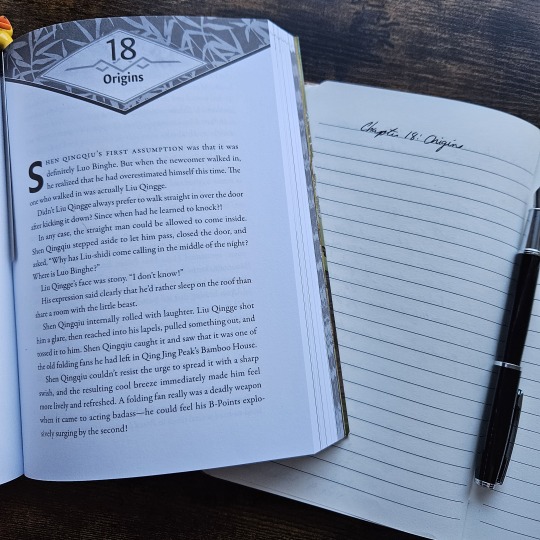 18
Origins
SHEN QINGQIU'S FIRST ASSUMPTION was that it was
definitely Luo Binghe. But when the newcomer walked in,
he realized that he had overestimated himself this time. The
one who walked in was actually Liu Qingge.
Didn't Liu Qingge always prefer to walk straight in over the door
after kicking it down? Since when had he learned to knock?!
In any case, the straight man could be allowed to come inside.
Shen Qingqiu stepped aside to let him pass, closed the door, and
asked, "Why has Liu-shidi come calling in the middle of the night?
Where is Luo Binghe?"
Liu Qingge's face was stony. "I don't know!"
His expression said clearly that he'd rather sleep on the roof than
share a room with the little beast.
Shen Qingqiu internally rolled with laughter. Liu Qingge shot
him a glare, then reached into his lapels, pulled something out, and
tossed it to him. Shen Qingqiu caught it and saw that it was one of
the old folding fans he had left in Qing Jing Peak's Bamboo House.
Shen Qingqiu couldn't resist the urge to spread it with a sharp
swish, and the resulting cool breeze immediately made him feel
more lively and refreshed. A folding fan really was a deadly weapon
when it came to acting badass—he could feel his B-Points explo-
sively surging by the second!
Chapter 18: Origins